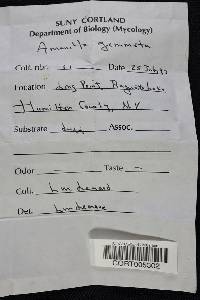 SUNY CORTLAND
Department of Biology (Mycology)
Amanita gemmata
Coll. no. Date 25 July
Location Long Point, Raquette Lake
Hamilton County, NY
Substrate Assoc.
Odor Taste -
Coll.
Det.
CORT005302